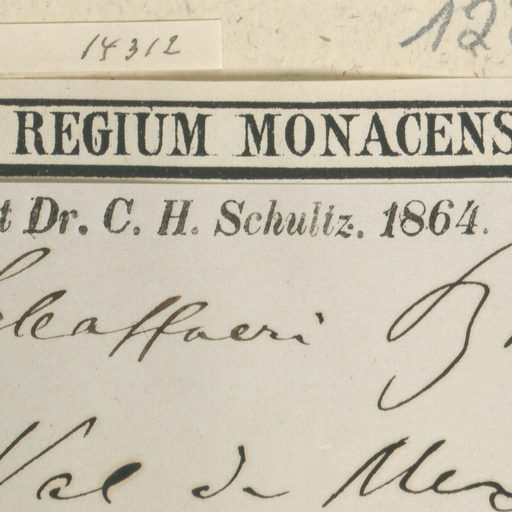 14312
12
REGIUM MONACENS
t Dr. C. H. Schultz. 1864.
Schaffneri
Val de Mex